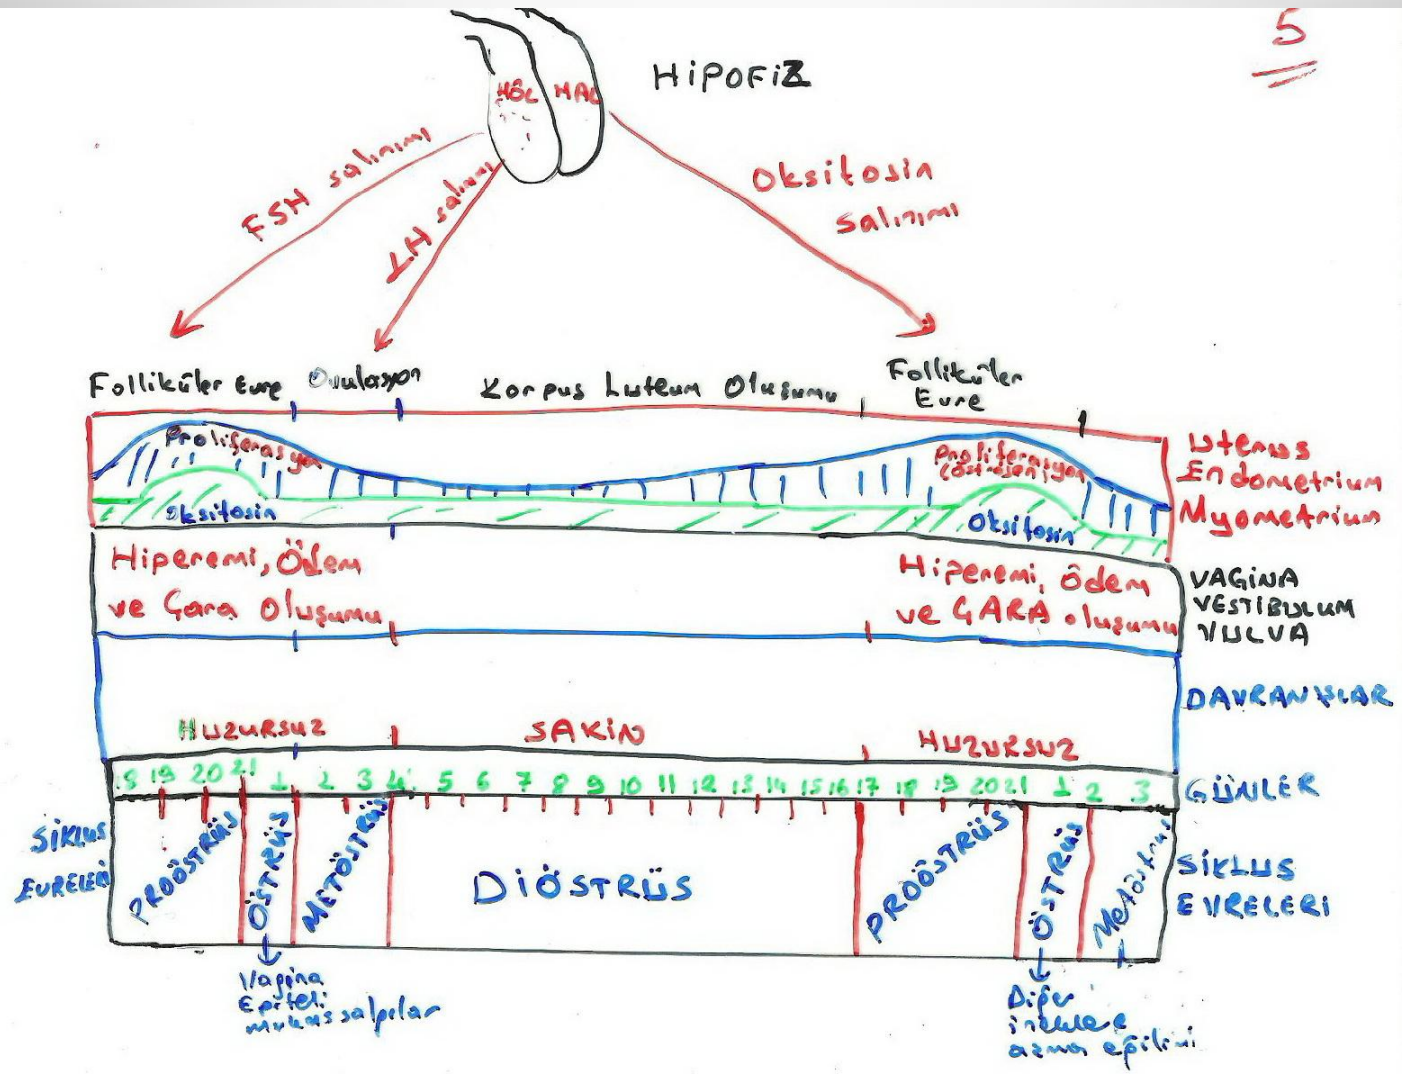 5
HİPOFİZ
HÖL
HAL
FSH salınımı
LH salınımı
Oksitosin
salınımı
Folliküler Evre
Ovulasyon
Korpus Luteum Oluşumu
Folliküler
Evre
Proliferasyon
Proliferasyon
(östrojen)
Uterus
Endometrium
Myometrium
Oksitosin
Oksitosin
Hiperemi, Ödem
ve Çara Oluşumu
Hiperemi, Ödem
ve ÇARA oluşumu
VAGINA
VESTİBULUM
VULVA
DAVRANIŞLAR
HUZURSUZ
SAKİN
HUZURSUZ
18 19 20 21 1 2 3 4 5 6 7 8 9 10 11 12 13 14 15 16 17 18 19 20 21 1 2 3
GÜNLER
SİKLUS
EVRELERİ
PROÖSTRÜS
ÖSTRÜS
METÖSTRÜS
DİÖSTRÜS
PROÖSTRÜS
ÖSTRÜS
Metöstrus
SİKLUS
EVRELERİ
Vagina
Epiteli
Mukus salgılar
Diğer
ineklere
azma eğilimi